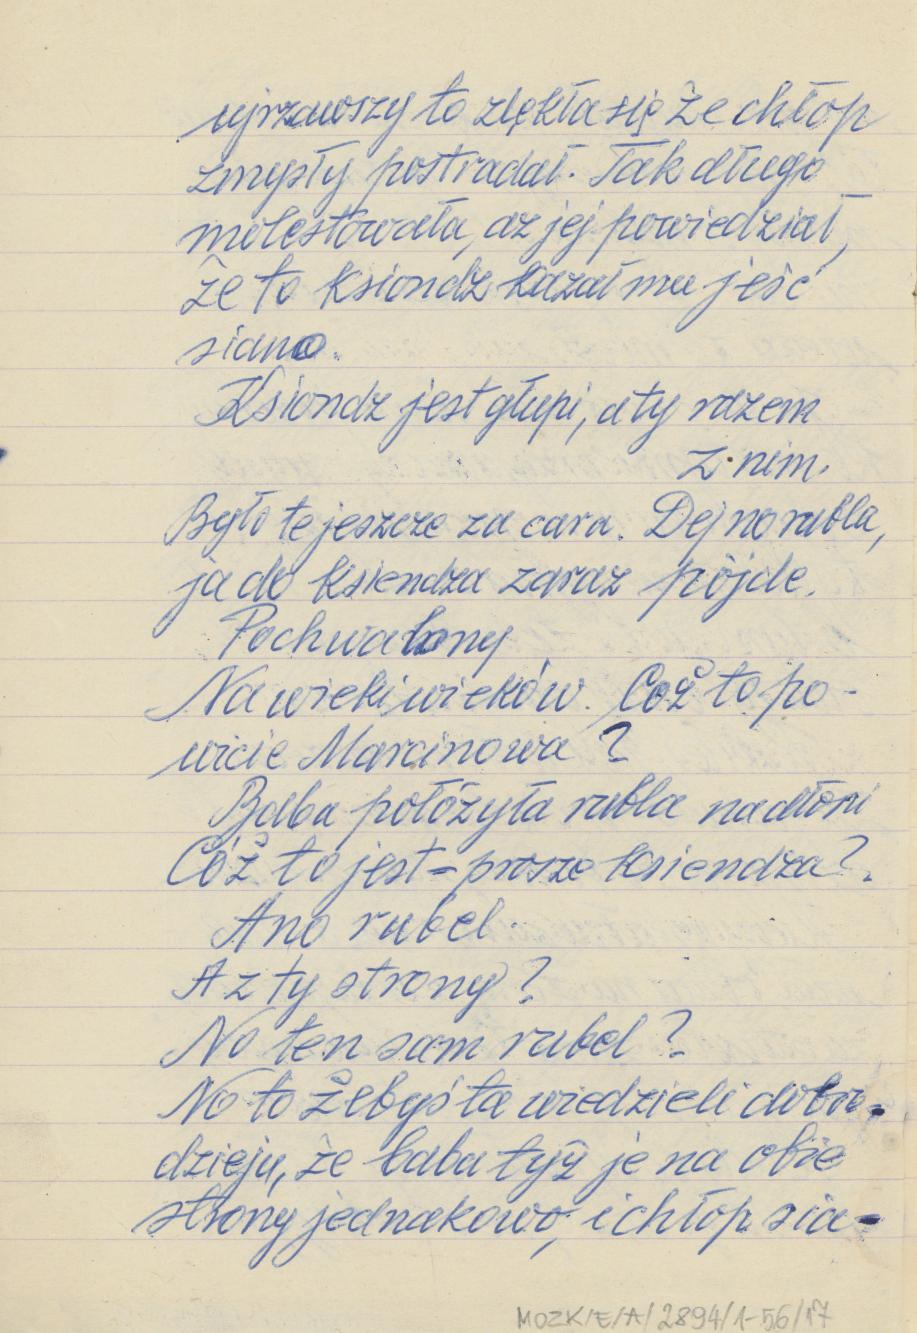 ujrzawszy to zlękła się że chłop
zmysły postradał. Tak długo
molestowała, az jej powiedział,
że to ksiondz kazał mu jeść
siano.
Ksiondz jest głupi, a ty razem
z nim.
Było te jeszcze za cara. Dej no rubla,
ja do ksiendza zaraz pójde.
Pochwalony
Na wieki wieków. Coż to po-
wicie Marcinowa?
Baba połóżyła rubla na dłoni
Cóż to jest - prosze ksiendza?.
Ano rubel
A z ty strony?
No ten sam rubel?
No to żebyśta wiedzieli dobro-
dzieju, że baba tyż je na obie
strony jednakowo, i chłop sia-
MOZK/E/A/2894/1-56/17